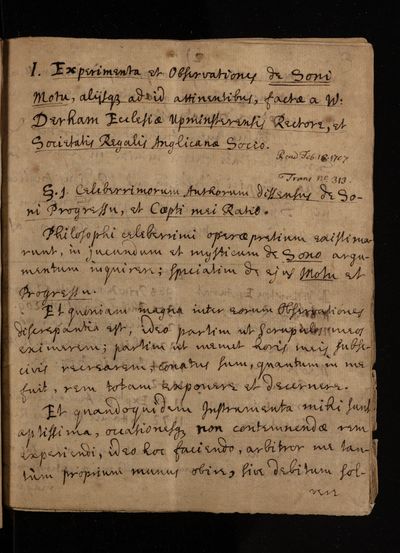 1. Experimenta et Observationes de Soni
Motu, aliisqз ad id attinentibus, factæ a W:
Derham Ecclesiæ Upminsterentis Rectore, et
Societatis Regalis Anglicanæ Socio.
Read Feb 18 1707
Trans no 313.
S. 1. Celeberrimorum Authorum dissensus de So-
ni Progressu, et Cæpti mei Ratio.
Philosophi celeberrimi operæpretium existima-
runt, in jucundum et mysticum de Sono argu-
mentum inquirere; speciatim de ejus Motu et
Progressu.
Et quoniam magna inter eorum Observationes
discrepantia est, ideo partim ut Scrupulos meos
eximerem; partim ut memet horis meis subse-
civis recrearem, conatus sum, quantum in me
fuit, rem totam exponere et decernere.
Et quandoquidem Instrumenta mihi sunt
aptissima, occationesqз non contemnendæ rem
experiendi, ideo hoc faciendo, arbitror me tan-
tùm proprium munus obire, sive debitum sol-
vere